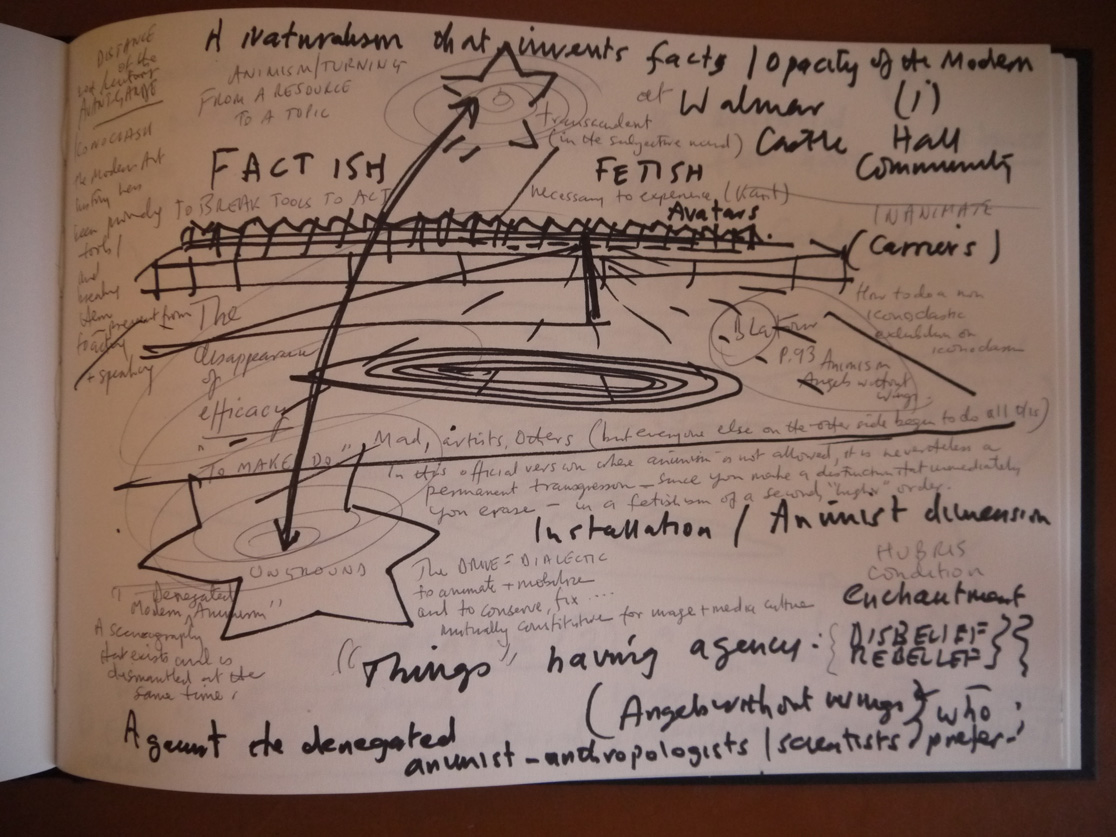 A Naturalism that invents facts / Opacity of the Modern
at Walmer (i)
Castle Hall
Community
DISTANCE
of the
AVANTGARDE
ICONOCLASH
The Modern Art
history has
been purely
tools /
and
breaking
them
to prevent from
acting
+ speaking
ANIMISM/TURNING
FROM A RESOURCE
TO A TOPIC
transcendent
(in the subjective mind)
FACT ISH
FETISH
TO BREAK TOOLS TO ACT
necessary to experience (Kant)
Avatars
INANIMATE
(Carriers)
How to do a non
iconoclastic
exhibition on
iconoclasm
B Latour
P.93 Animism
Angels without
wings
The
disappearance
of
efficacy
"TO MAKE DO"
Mad, artists, Others (but everyone else on the other side began to do all this)
In this official version where animism is not allowed, it is nevertheless a
permanent transgression – since you make a distinction that immediately
you erase – in a fetishism of a second "higher" order.
Installation / Animist dimension
UNGROUND
The DRIVE = DIALECTIC
to animate + mobilize
and to conserve, fix ....
mutually constitutive for image + media culture
HUBRIS
Condition
enchantment
"Denegated
Modern Animism"
A scenography
that exists and is
dismantled at the
same time.
"Things" having agency: { DISBELIEF } }
REBELIEF
(Angels without wings) who
Against the denegated
animist–anthropologists / scientists prefer